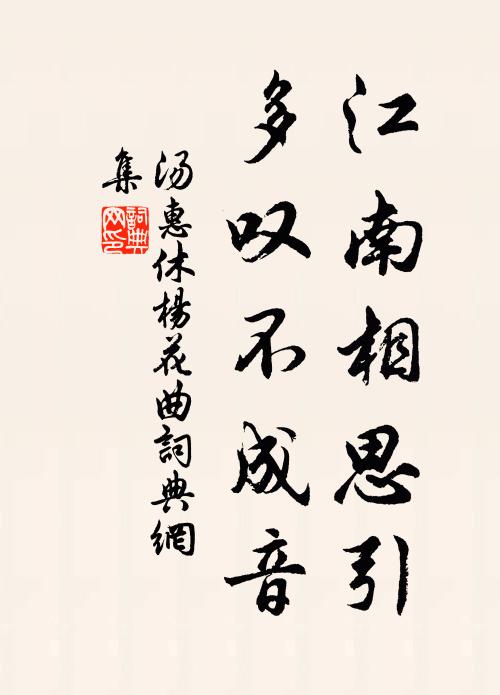 江南相思引
多叹不成音
汤惠休杨花曲詞典網
集
詞典网印